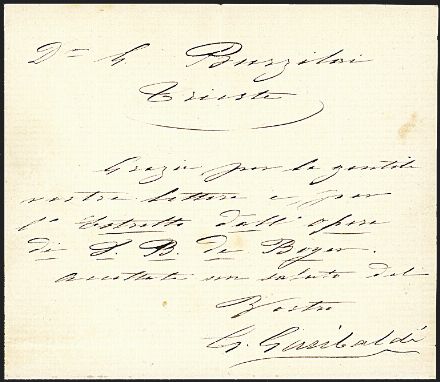 Dr. G. Barzilai
Trieste
Grazie per la gentile
vostra lettera e per
l'estratto dall'opera
di S. B. de Boyer.
Accettate un saluto dal
Vostro
G. Garibaldi